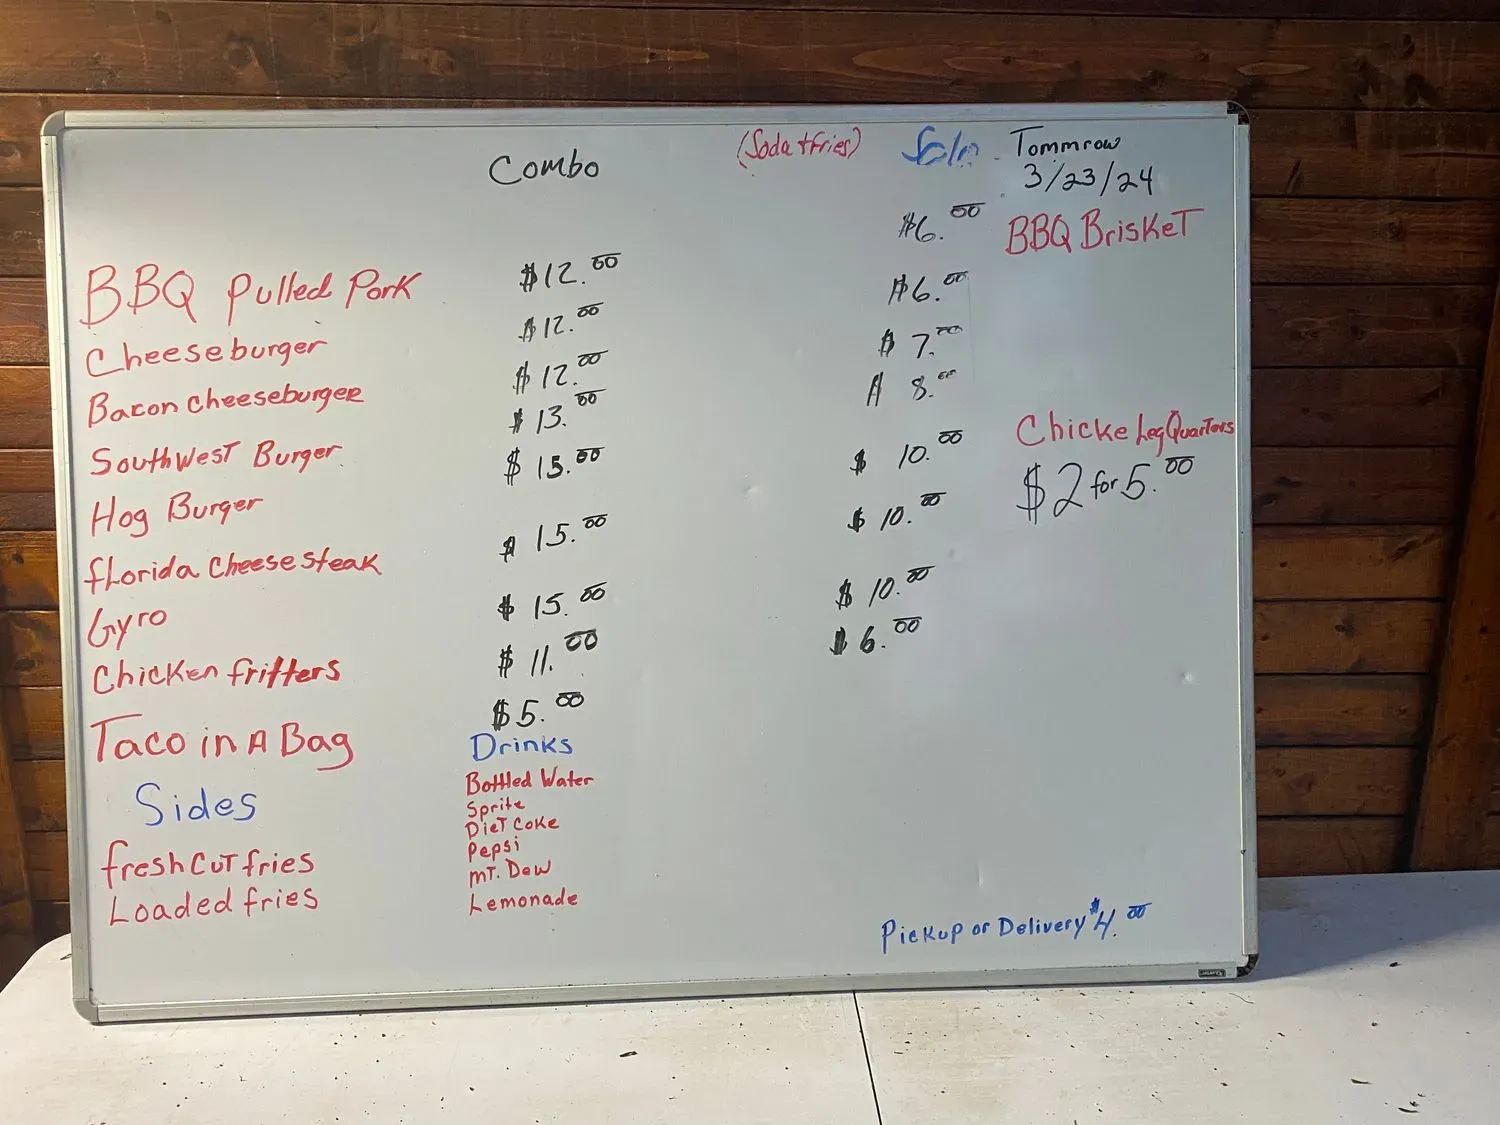 Combo (Soda + fries) Solo Tommrow
3/23/24
$6.00 BBQ BriskeT
BBQ Pulled Pork $12.00 $6.00
Cheeseburger $12.00 $7.00
Bacon cheeseburger $12.00 $8.00
SouthwesT Burger $13.00 $10.00 Chicke Leg QuarTers
Hog Burger $15.00 $10.00 $2 for 5.00
fLorida cheese steak $15.00 $10.00
Gyro $15.00 $6.00
Chicken fritters $11.00
Taco in A Bag $5.00
Sides Drinks
Bottled Water
Sprite
DieT Coke
fresh cuT fries Pepsi
MT. Dew
Loaded fries Lemonade
Pickup or Delivery $4.00